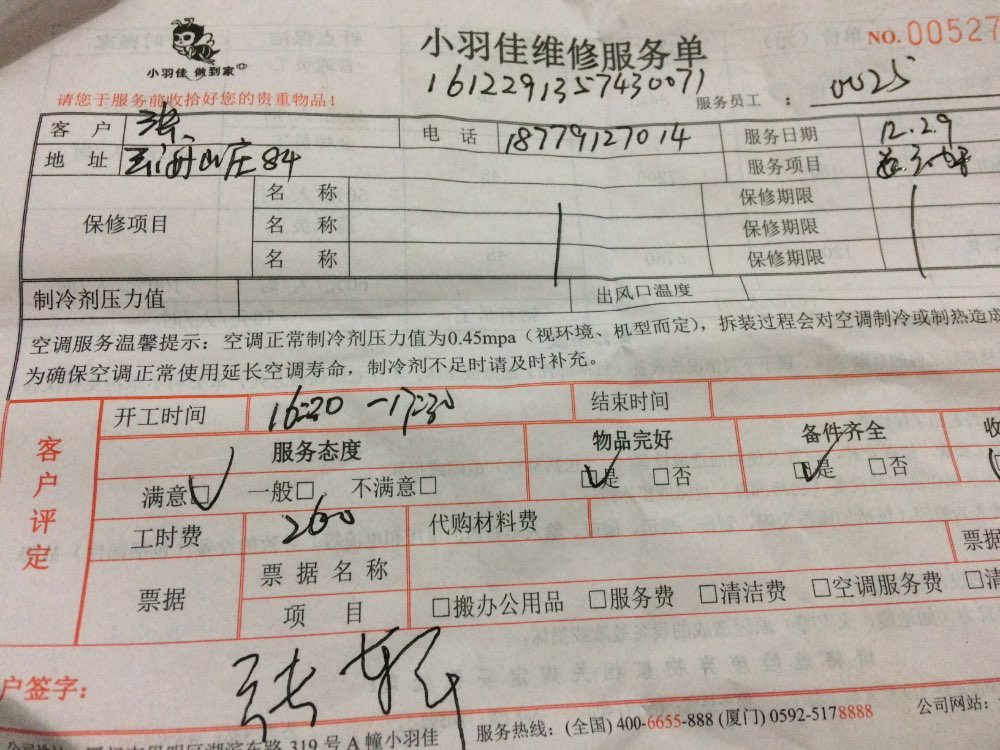 小羽佳 做到家
小羽佳维修服务单
NO. 00527
1612291357430071
请您于服务前收拾好您的贵重物品！
服务员工 ： 0025
客 户 张 电 话 18779127014 服务日期 12.29
地 址 山庄84 服务项目
保修项目 名 称 保修期限
名 称 保修期限
名 称 保修期限
制冷剂压力值 出风口温度
空调服务温馨提示：空调正常制冷剂压力值为0.45mpa（视环境、机型而定），拆装过程会对空调制冷或制热造成
为确保空调正常使用延长空调寿命，制冷剂不足时请及时补充。
客户评定
开工时间 16:20 -17:30 结束时间
服务态度 物品完好 备件齐全 收
满意□ 一般□ 不满意□ □是 □否 □是 □否
工时费 200 代购材料费
票据 票据名称 票据
项 目 □搬办公用品 □服务费 □清洁费 □空调服务费 □清
户签字：
服务热线：(全国) 400-6655-888 (厦门) 0592-5178888 公司网站：
湖滨东路 319 号 A 幢小羽佳